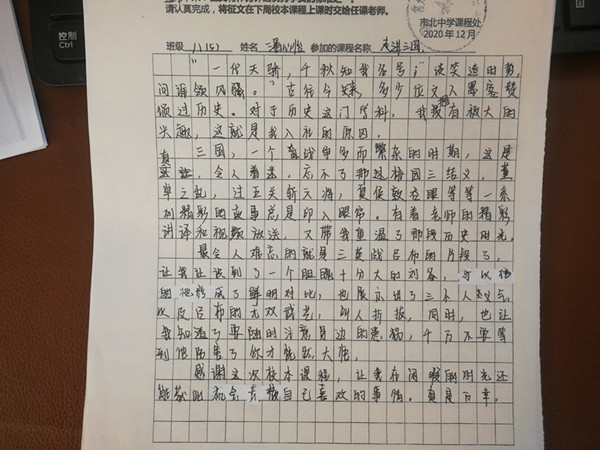 请认真完成，将征文在下周校本课程上课时交给任课老师。
市北中学课程处
2020年12月
班级 姓名 参加的课程名称 走进三国
"一代天骄，千秋知我名号；谈笑运时势，
问谁领风骚。"古往今来，多少位文人墨客疑
颂过历史。对于历史这门学科，我我有极大的
兴趣，这就是我入社的原因。
三国，一个奋战争多而繁杂的时期，这是
令人着迷，忘不了那过桃园三结义，黄
巾之乱，过五关斩六将，夏侯敦夜眼等等一系
列精彩的故事总是印入眼帘。有着老师的精彩
讲译和视频放送，又带我重温了那段历史时光。
最令人难忘的就是三英战吕布的片段了，
让我认识到了一个胆略十分大的刘备，
的 成了鲜明对比，也展示出了三个人 义气，
以及吕布的无双 ，叫人折服。同时，也让
我知道了要随时注意身边的患祸，千万不要等
到他厉害了你才能跃大悟。
感谢这次校本课程，让我在闲暇的时光还
能获此机会去 自己喜欢的事情。真是万幸。